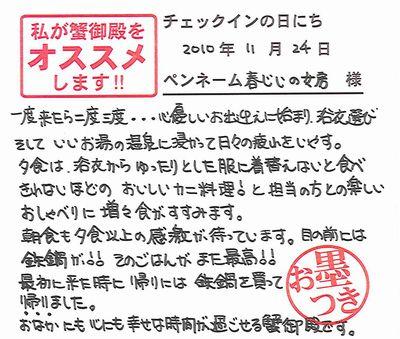 私が蟹御殿を
オススメ
します!!
チェックインの日にち
2010年 11月 24日
ペンネーム 春じじの女房 様
一度来たら二度三度・・・心優しいお出迎えに始まり、浴衣選び
そして いいお湯の温泉に浸かって日々の疲れをいやす。
夕食は、浴衣から ゆったりとした服に着替えないと食べ
きれないほどの おいしいカニ料理!と担当の方との楽しい
おしゃべりに 増々食がすすみます。
朝食も夕食以上の感激が待っています。目の前には
鉄鍋が!! そのごはんが また最高!!
最初に来た時に 帰りには 鉄鍋を買って
帰りました。
おなかにも心にも 幸せな時間が過ごせる蟹御殿です。
お墨つき